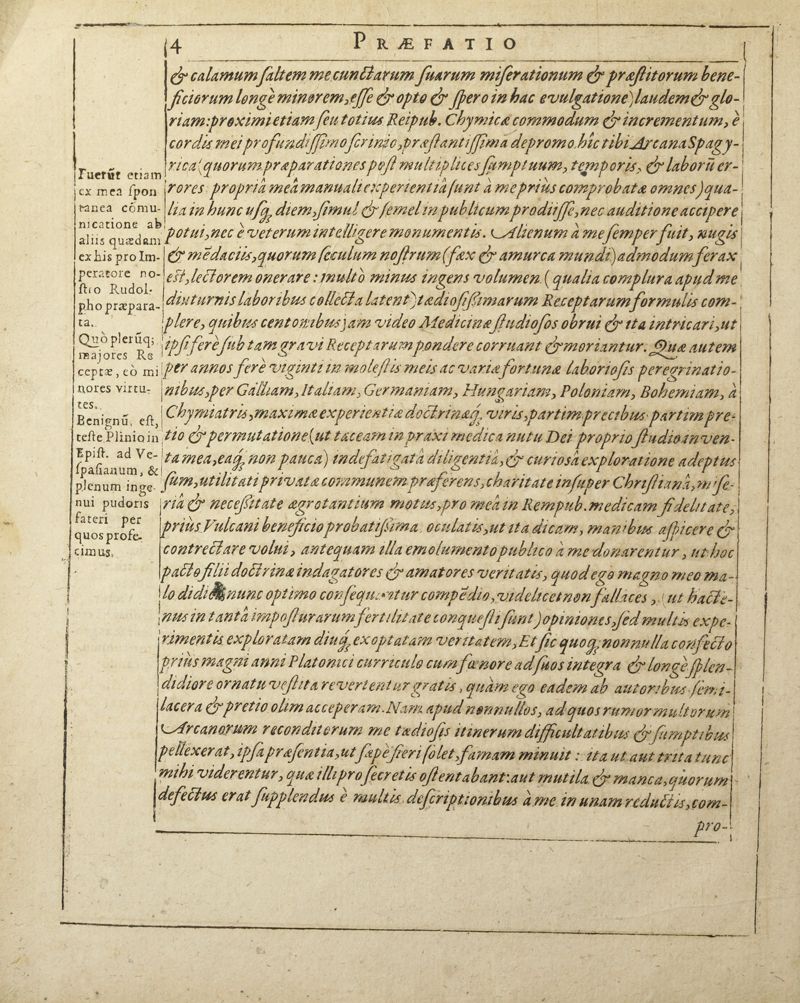 4 PRÆFATIO
& calamum ſaltem me cunctarum ſuarum miſerationum & præſtitorum bene-
ficiorum longè minorem, eſſe & opto & ſpero in hac evulgatione) laudem & glo-
riam: proximi etiam ſeu totius Reipub. Chymicæ commodum & incrementum, è
cordis mei profundiſſimo ſcrinio, præſtantiſſima depromo hîc tibi Arcana Spagy-
rica (quorum præparationes poſt multiplices ſumptuum, temporis, & laborū er-
rores propriâ meâ manuali experientiâ ſunt à me priùs comprobatæ omnes) qua-
lia in hunc uſq; diem, ſimul & ſemel in publicum prodiiſſe, nec auditione accipere
potui, nec è veterum intelligere monumentis. Alienum à me ſemper fuit, nugis
& mēdaciis, quorum ſeculum noſtrum (fæx & amurca mundi) admodum ferax
eſt, lectorem onerare: multò minus ingens volumen (qualia complura apud me
diuturnis laboribus collecta latent) tædioſiſſimarum Receptarum formulis com-
plere, quibus centonibus jam video Medicinæ ſtudioſos obrui & ita intricari, ut
ipſi ferè ſub tam gravi Receptarum pondere corruant & moriantur. Quæ autem
per annos ferè viginti in moleſtis meis ac variæ fortunæ laborioſis peregrinatio-
nibus, per Galliam, Italiam, Germaniam, Hungariam, Poloniam, Bohemiam, à
Chymiatris, maximæ experientiæ doctrinæq; viris, partim precibus partim pre-
tio & permutatione (ut taceam in praxi medica nutu Dei proprio ſtudio inven-
ta mea, eaq; non pauca) indefatigatâ diligentiâ, & curiosâ exploratione adeptus
ſum, utilitati privatæ communem præferens, charitate inſuper Chriſtianâ, miſe-
riâ & neceſſitate ægrotantium motus, pro meâ in Rempub. medicam fidelitate,
priùs Vulcani beneficio probatiſſima oculatis, ut ita dicam, manibus aſpicere &
contrectare volui, antequam illa emolumento publico à me donarentur, ut hoc
pacto filii doctrinæ indagatores & amatores veritatis, quod ego magno meo ma-
lo didici nunc optimo conſequantur compēdio, videlicet non fallaces, (ut hacte-
nus in tantâ impoſturarum fertilitate conqueſti ſunt) opiniones, ſed multis expe-
rimentis exploratam diuq; exoptatam veritatem, Et ſic quoq; nonnulla confecto
priùs magni anni Platonici curriculo cum fœnore ad ſuos integra & longè ſplen-
didiore ornatu veſtita revertentur gratis, quàm ego eadem ab autoribus ſemi-
lacera & pretio olim acceperam. Nam apud nonnullos, ad quos rumor multorum
Arcanorum reconditorum me tædioſis itinerum difficultatibus & ſumptibus
pellexerat, ipſa præſentia, ut ſæpè fieri ſolet, famam minuit: ita ut aut trita tunc
mihi viderentur, quæ illi pro ſecretis oſtentabant: aut mutila & manca, quorum
defectus erat ſupplendus è multis deſcriptionibus à me in unam reductis, com-
pro-
Fuerūt etiam
ex mea ſpon
tanea cōmu-
nicatione ab
aliis quædam
ex his pro Im-
peratore no-
ſtro Rudol-
pho præpara-
ta.
Quò plerūq;
majores Re
ceptæ, eò mi
nores virtu-
tes.
Benignū, eſt,
teſte Plinio in
Epiſt. ad Ve-
ſpaſianum, &
plenum inge-
nui pudoris
fateri per
quos profe-
cimus,